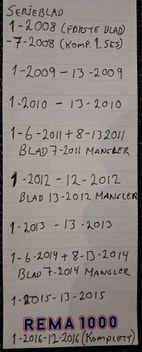 SERIEBLAD
1-2008 (FØRSTE BLAD)
-7-2008 (KOMP. 1. SES)
1-2009-13-2009
1-2010-13-2010
1-6-2011+8-13 2011
BLAD 7-2011 MANGLER
1-2012-12-2012
BLAD 13-2012 MANGLER
1-2013-13-2013
1-6-2014+8-13-2014
BLAD 7-2014 MANGLER
1-2015-13-2015
REMA 1000
1-2016-12-2016 (KOMPLETT)